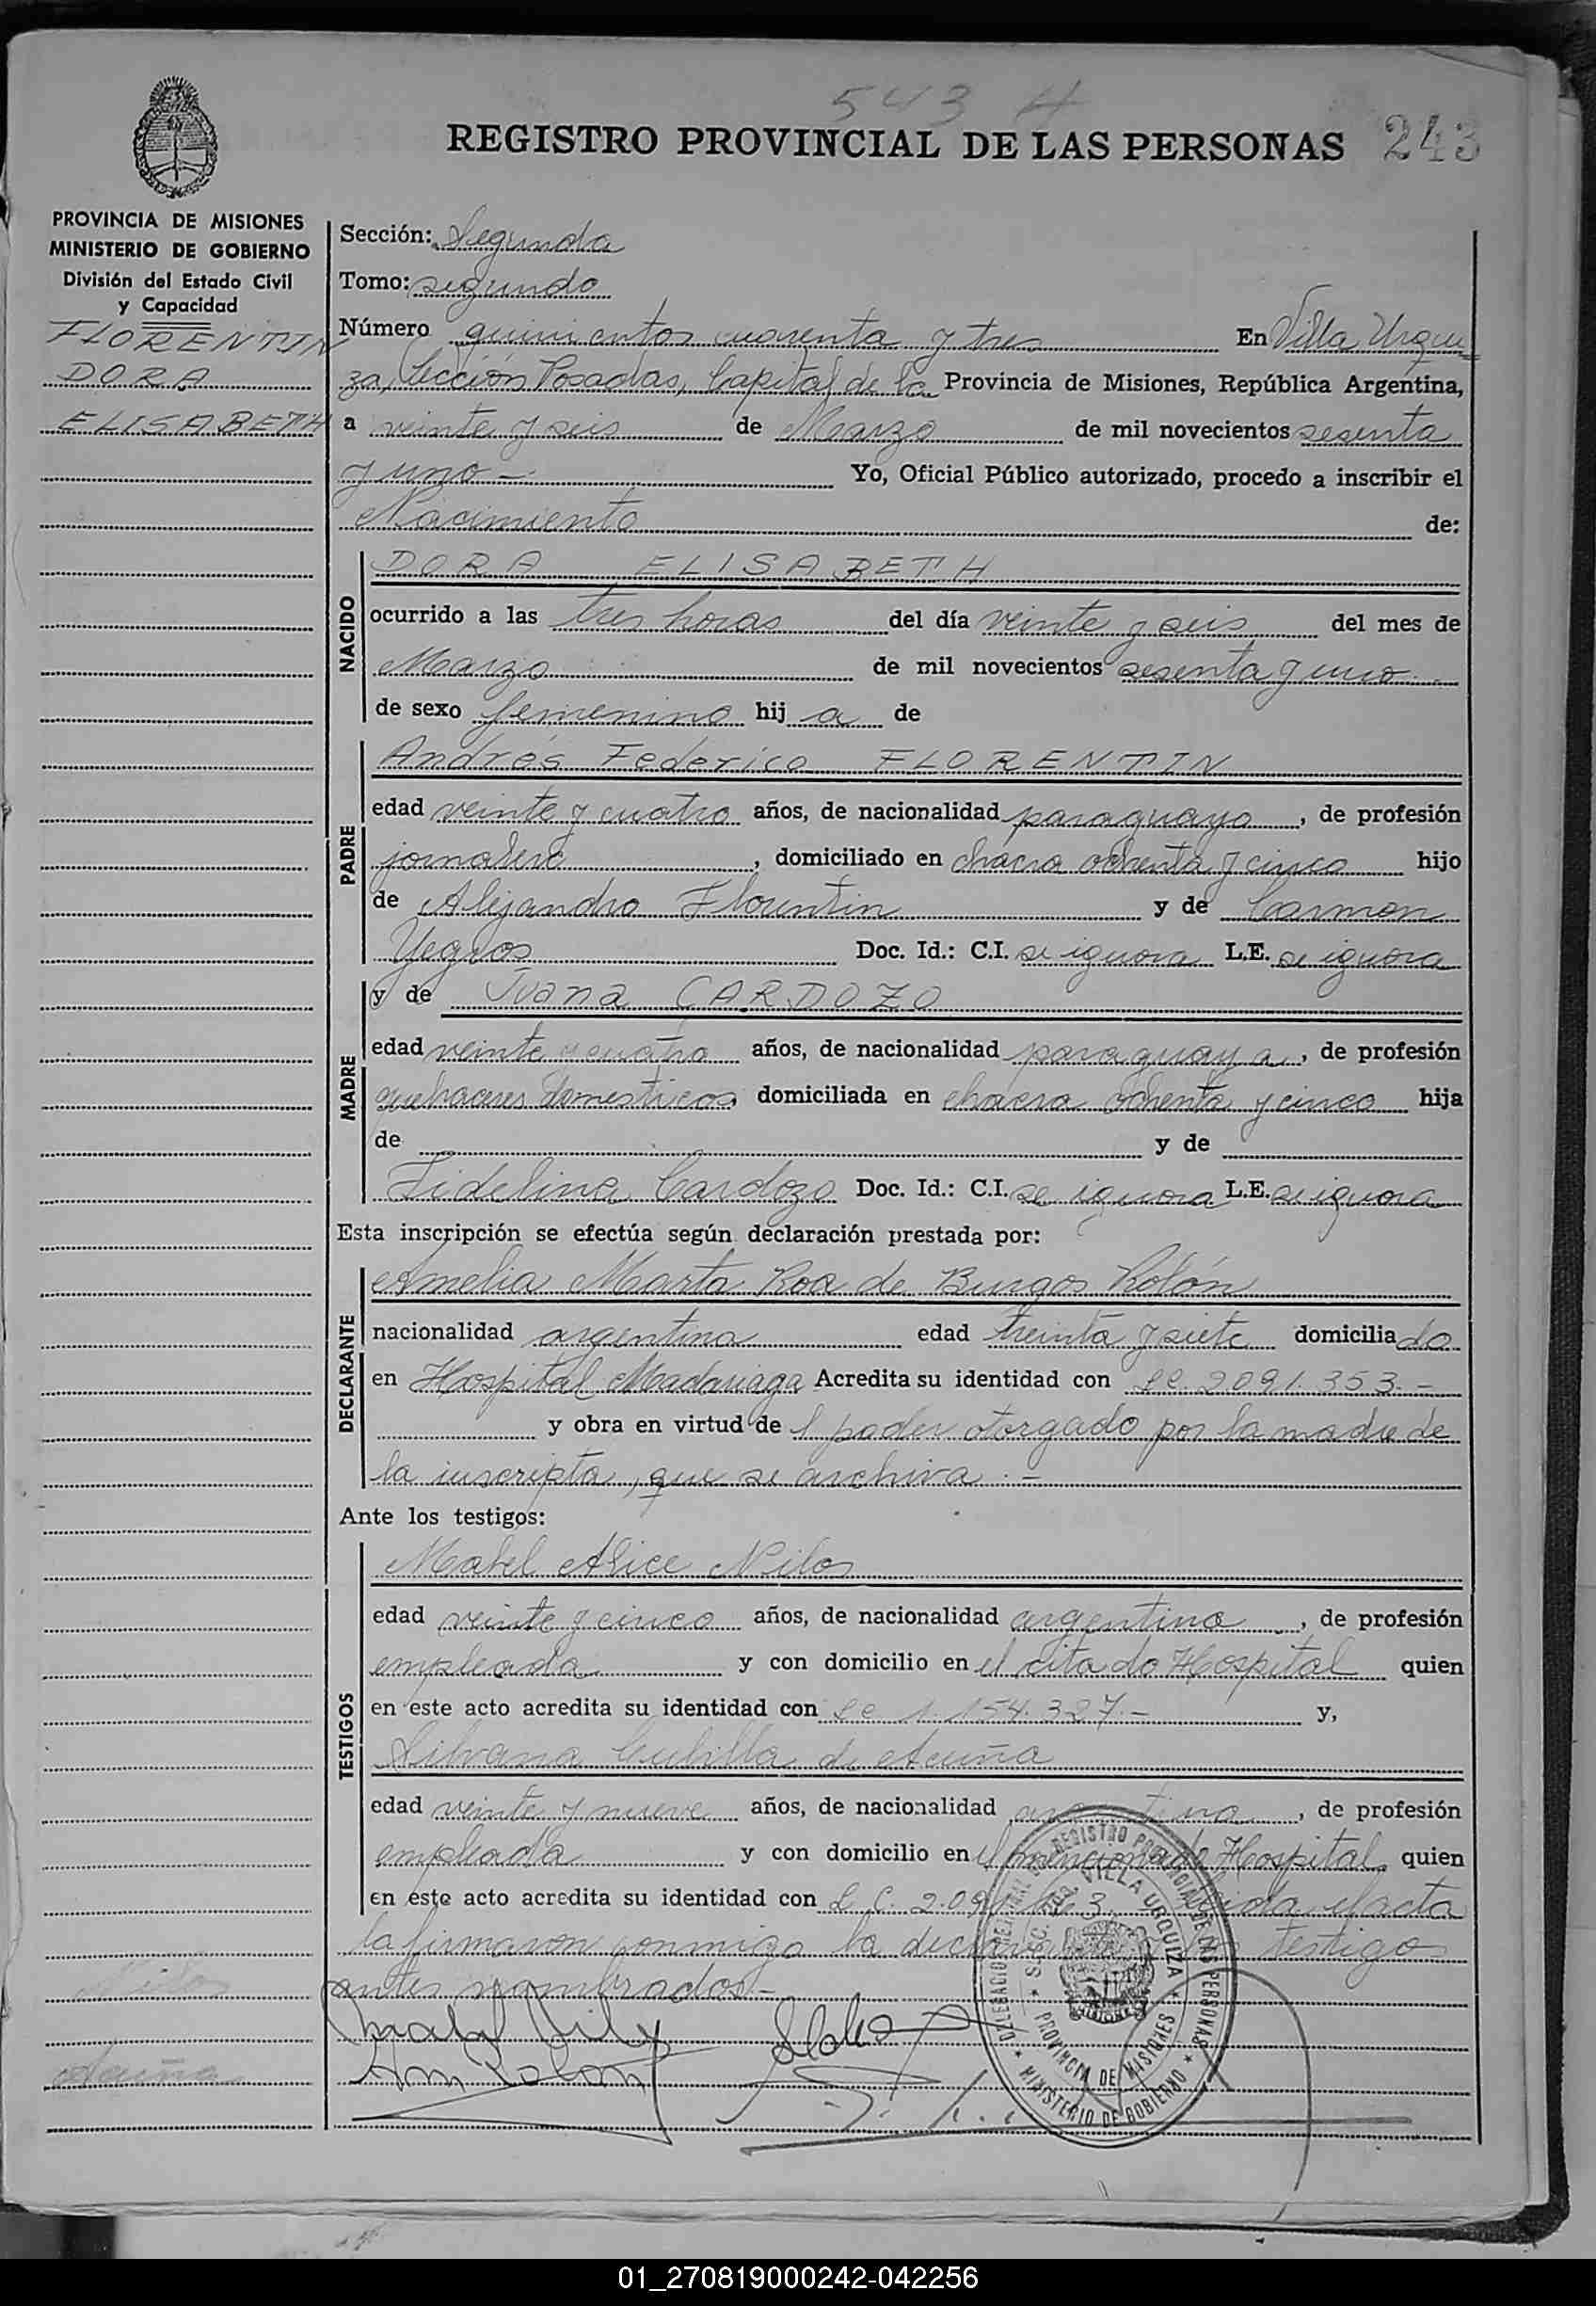 543 H
REGISTRO PROVINCIAL DE LAS PERSONAS 243
PROVINCIA DE MISIONES
MINISTERIO DE GOBIERNO
División del Estado Civil
y Capacidad
FLORENTIN
DORA
ELISABETH
Sección: Segunda
Tomo: segundo
Número quinientos cuarenta y tres En Villa Urqui
za, Sección Posadas, Capital de la Provincia de Misiones, República Argentina,
a veinte y seis de Marzo de mil novecientos sesenta
y uno - Yo, Oficial Público autorizado, procedo a inscribir el
Nacimiento de:
NACIDO
DORA ELISABETH
ocurrido a las tres horas del día veinte y seis del mes de
Marzo de mil novecientos sesenta y uno
de sexo femenino hij a de
PADRE
Andrés Federico FLORENTIN
edad veinte y cuatro años, de nacionalidad paraguayo, de profesión
jornalero, domiciliado en chacra ochenta y cinco hijo
de Alejandro Florentin y de Carmen
Yegros Doc. Id.: C.I. se ignora L.E. se ignora
MADRE
y de Juana CARDOZO
edad veinte y cuatro años, de nacionalidad paraguaya, de profesión
quehaceres domesticos, domiciliada en chacra ochenta y cinco hija
de y de
Fidelina Cardozo Doc. Id.: C.I. se ignora L.E. se ignora
Esta inscripción se efectúa según declaración prestada por:
DECLARANTE
Amelia Marta Roa de Burgos Rolón
nacionalidad argentina edad treinta y siete domiciliado
en Hospital Madariaga Acredita su identidad con LC. 2.091.353.-
y obra en virtud de l poder otorgado por la madre de
la inscripta, que se archiva.-
Ante los testigos:
TESTIGOS
Mabel Alice Nilos
edad veinte y cinco años, de nacionalidad argentina, de profesión
empleada y con domicilio en el citado Hospital quien
en este acto acredita su identidad con Lc 1.154.327.- y,
Silvana Cubilla de Acuña
edad veinte y nueve años, de nacionalidad argentina, de profesión
empleada y con domicilio en el mencionado Hospital quien
en este acto acredita su identidad con L.C. 2.09 Leida el acta
la firmaron conmigo la declarante testigo
antes nombrados.-
Nilos
Acuña
REGISTRO PROVINCIAL DE LAS PERSONAS
SECC. VILLA URQUIZA
PROVINCIA DE MISIONES
MINISTERIO DE GOBIERNO
01_270819000242-042256